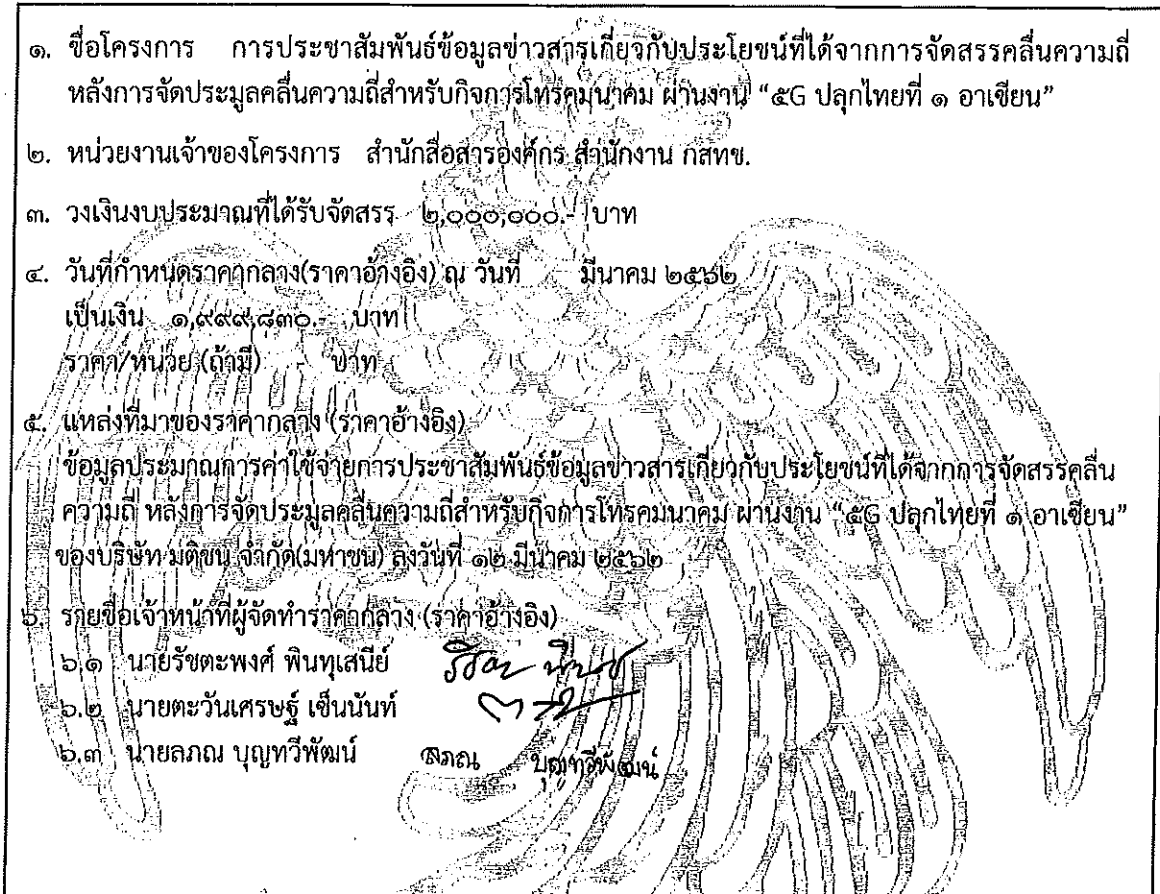 ๑. ชื่อโครงการ การประชาสัมพันธ์ข้อมูลข่าวสารเกี่ยวกับประโยชน์ที่ได้จากการจัดสรรคลื่นความถี่
หลังการจัดประมูลคลื่นความถี่สำหรับกิจการโทรคมนาคม ผ่านงาน “๕G ปลุกไทยที่ ๑ อาเซียน”
๒. หน่วยงานเจ้าของโครงการ สำนักสื่อสารองค์กร สำนักงาน กสทช.
๓. วงเงินงบประมาณที่ได้รับจัดสรร ๒,๐๐๐,๐๐๐.- บาท
๔. วันที่กำหนดราคากลาง(ราคาอ้างอิง) ณ วันที่ มีนาคม ๒๕๖๒
เป็นเงิน ๑,๙๙๙,๘๓๐.- บาท
ราคา/หน่วย (ถ้ามี) - บาท
๕. แหล่งที่มาของราคากลาง (ราคาอ้างอิง)
ข้อมูลประมาณการค่าใช้จ่ายการประชาสัมพันธ์ข้อมูลข่าวสารเกี่ยวกับประโยชน์ที่ได้จากการจัดสรรคลื่น
ความถี่ หลังการจัดประมูลคลื่นความถี่สำหรับกิจการโทรคมนาคม ผ่านงาน “๕G ปลุกไทยที่ ๑ อาเซียน”
ของบริษัท มติชน จำกัด(มหาชน) ลงวันที่ ๑๒ มีนาคม ๒๕๖๒
๖. รายชื่อเจ้าหน้าที่ผู้จัดทำราคากลาง (ราคาอ้างอิง)
๖.๑ นายรัชตะพงศ์ พินทุเสนีย์
๖.๒ นายตะวันเศรษฐ์ เซ็นนันท์
๖.๓ นายลภณ บุญทวีพัฒน์ ลภณ บุญทวีพัฒน์